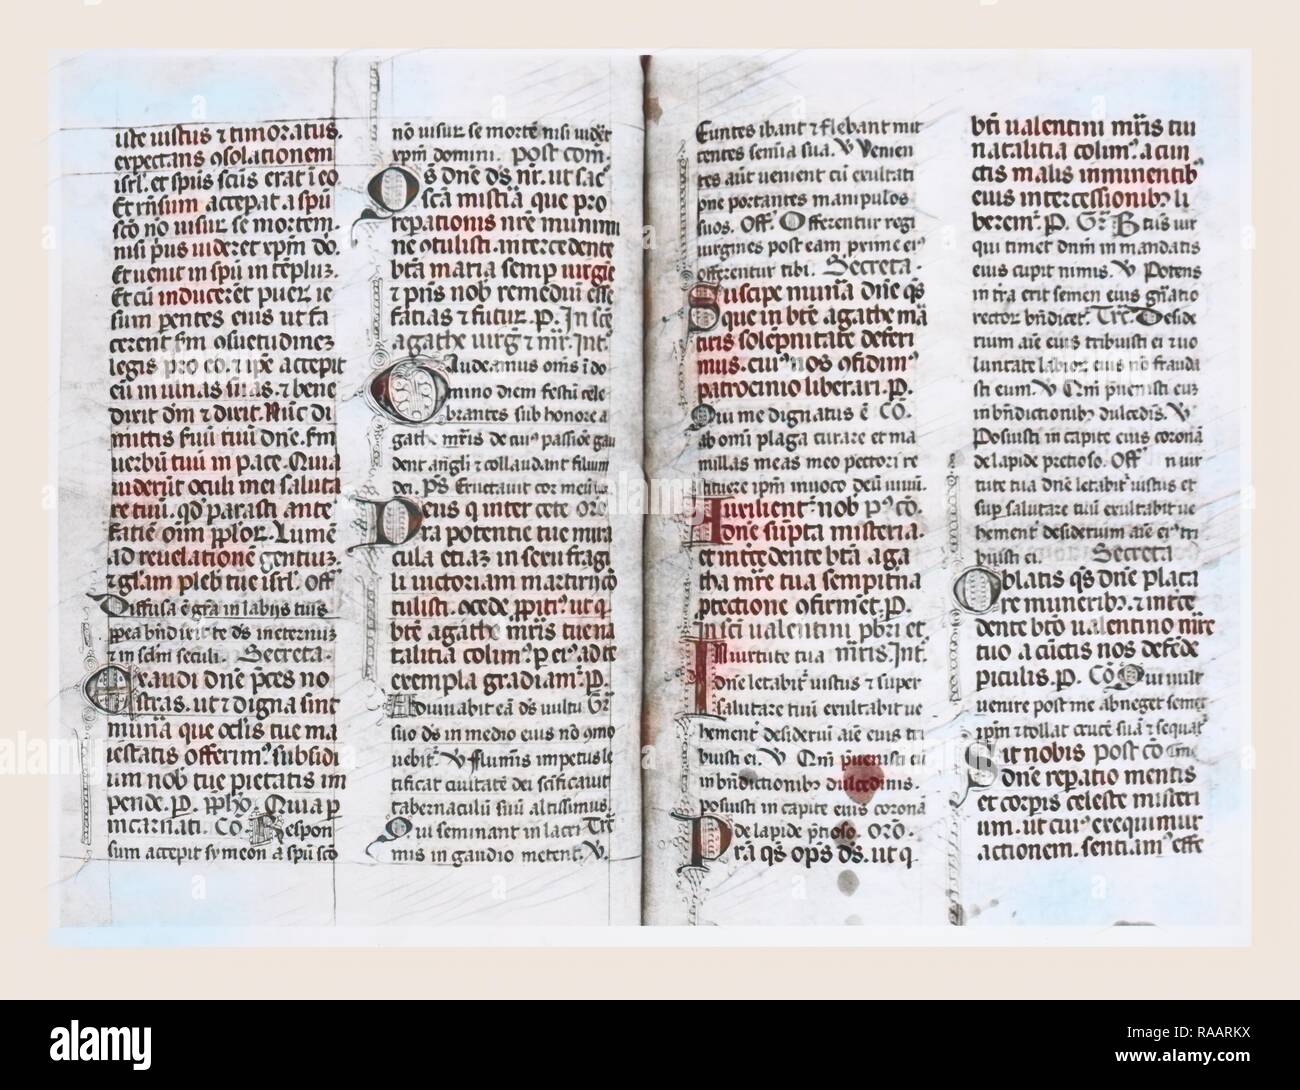 iste iustus ⁊ timoratus.
expectans ꝯsolationem
isrl̄. et spūs scūs erat ī eo.
Et rn̄sum accepat a spū
scō nō visur se mortem.
nisi pꝰius videret xp̄m dō.
Et venit in spū in tēplūz.
Et cū inducerēt pueꝝ ie
sum pᵉentes eius ut fa
cerent sm̄ ꝯsuetudinez
legis pro eo. ⁊ ipē accepit
eū in ulnas suas. ⁊ bene
dixit dm̄ ⁊ dixit. Nūc di
mittis ẜuū tuū dn̄e. sm̄
verbū tuū in pace. Quia
viderūt oculi mei saluta
re tuū. qd̄ parasti ante
faciē om̄ ppl̄oꝝ. Lumē
ad revelationē gentiuz.
⁊ gl̄am pleb̄ tue isrl̄. Off̄
Diffusa ē gr̄a in labijs tuis
ꝓpᵉea bn̄dixit te ds̄ ineternuz
⁊ in sclm̄ seculi. Secreta.
Exaudi dn̄e pᵉces no
stras. ut ⁊ digna sint
munᵃa que oclīs tue ma
iestatis offerimꝰ. subsidi
um nob̄ tue pietatis im
pende. P. Quia p
incarnati. Cō Respon
sum accepit symeon a spū scō
nō visuꝝ se mortē nisi viderᵗ
xp̄m domini. Post com̄.
Qs̄ dn̄e ds̄ nr̄. ut sac
scā mistīa que pro
repationis nr̄e munimi
ne ꝯtulisti. intercedente
btā maria semp̄ virgīe
⁊ pn̄s nob̄ remediū esse
facias ⁊ futuꝝ. P. In scē
agathe virgīs ⁊ mr̄. Int̄.
Gaudeamus om̄s ī do
mino diem festū cele
brantes sub honore a
gathe mr̄is de cuiꝰ passiōe gau
dent angl̄i ⁊ collaudant filium
dei. Pꝰ Eructavit cor meū
Deus q inter cete Orō
ra potentie tue mira
cula etiaz in sexu fragi
li victoriam martirij cō
tulisti. ꝯcede ꝓpitiꝰ. ut q
btē agathe mr̄is tue na
talitia colimꝰ. p eiꝰ. ad te
exempla gradiamꝰ. P.
Adiuvabit eā ds̄ vultu Gr̄
suo ds̄ in medio eius nō ꝯmo
vebitᵉ. ℣ flumīs impetus le
tificat civitatē dei sc̄ificavit
tabernaculū suū altissimus.
Qui seminant in lacri Trc̄
mis in gaudio metent. ℣.
Euntes ibant ⁊ flebant mit
tentes semīa sua. ℣ Venien
tes aūt venient cū exultati
one portantes manipulos
suos. Off̄. Offerentur regi
virgines post eam. prime eiꝰ
offerentur tibi. Secreta.
Suscipe munᵃa dn̄e qs̄
que in btē agathe mā
tiris solēpnitate deferi
mus. cuiꝰ nos ꝯfidimꝰ
patrocinio liberari. P.
Qui me dignatus ē Cō.
ab omī plaga curare et ma
millas meas meo pectori re
stituere ipm̄ invoco deū vivū.
Auxilient̄ nob̄ Pꝰ cō.
dn̄e sūpta misteria.
et intᵉcedente btā aga
tha mr̄e tua sempitna
ꝓtectione ꝯfirmēt. P.
In sc̄i valentini pbr̄i et
In virtute tua mr̄is. Int̄.
dn̄e letabitᵉ iustus ⁊ super
salutare tuū exultabit ve
hement̄ desideriū aīe eius tri
buisti ei. ℣. Qm̄ pᵉvenisti eū
in bn̄dictionibꝫ dulcedinis.
posuisti in capite eius coronā
de lapide pᵉtioso. Orō.
Pra qs̄ ops̄ ds̄. ut q
btī valentini mr̄is tui
natalitia colimꝰ. a cun
ctis malis imminentibꝫ
eius intercessionibꝫ li
beremᵉ. P. Gr̄. Btūs vir
qui timet dn̄m in mandatis
eius cupit nimis. ℣ Potens
in trā erit semen eius gn̄atio
rectoꝝ bn̄dicetᵉ. Trc̄. Deside
rium aīe eius tribuisti ei ⁊ vo
luntate labioꝝ eius nō frauda
sti eum. ℣ Qm̄ pᵉvenisti euz
in bn̄dictionibꝫ dulcedīs. ℣
Posuisti in capite eius coronā
de lapide pretioso. Off̄ n vir
tute tua dn̄e letabitᵉ iustus et
sup̄ salutare tuū exultabit ve
hement̄ desiderium aīe eiꝰ tri
buisti ei. Secreta
Oblatis qs̄ dn̄e placa
re muneribꝫ. ⁊ intᵉce
dente btō valentino mr̄e
tuo a cūctis nos defēde
piculis. P. Cō Qui vult
venire post me abneget semeᵗ
ipm̄ ⁊ tollat crucē suā ⁊ sequatᵉ
Sit nobis Post cō
dn̄e repᵃatio mentis
et corpis celeste misteri
um. ut cuiꝰ exequimur
actionem. sentiamꝰ effe
alamy
Image ID: RAARKX
www.alamy.com